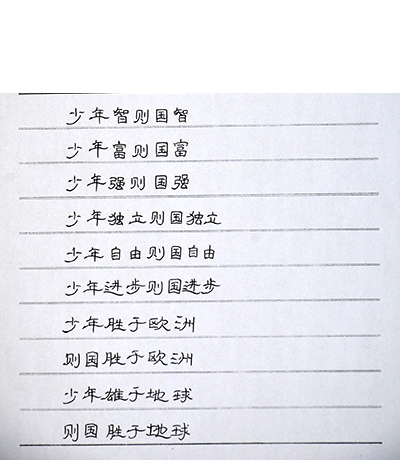 少年智则国智
少年富则国富
少年强则国强
少年独立则国独立
少年自由则国自由
少年进步则国进步
少年胜于欧洲
则国胜于欧洲
少年雄于地球
则国胜于地球